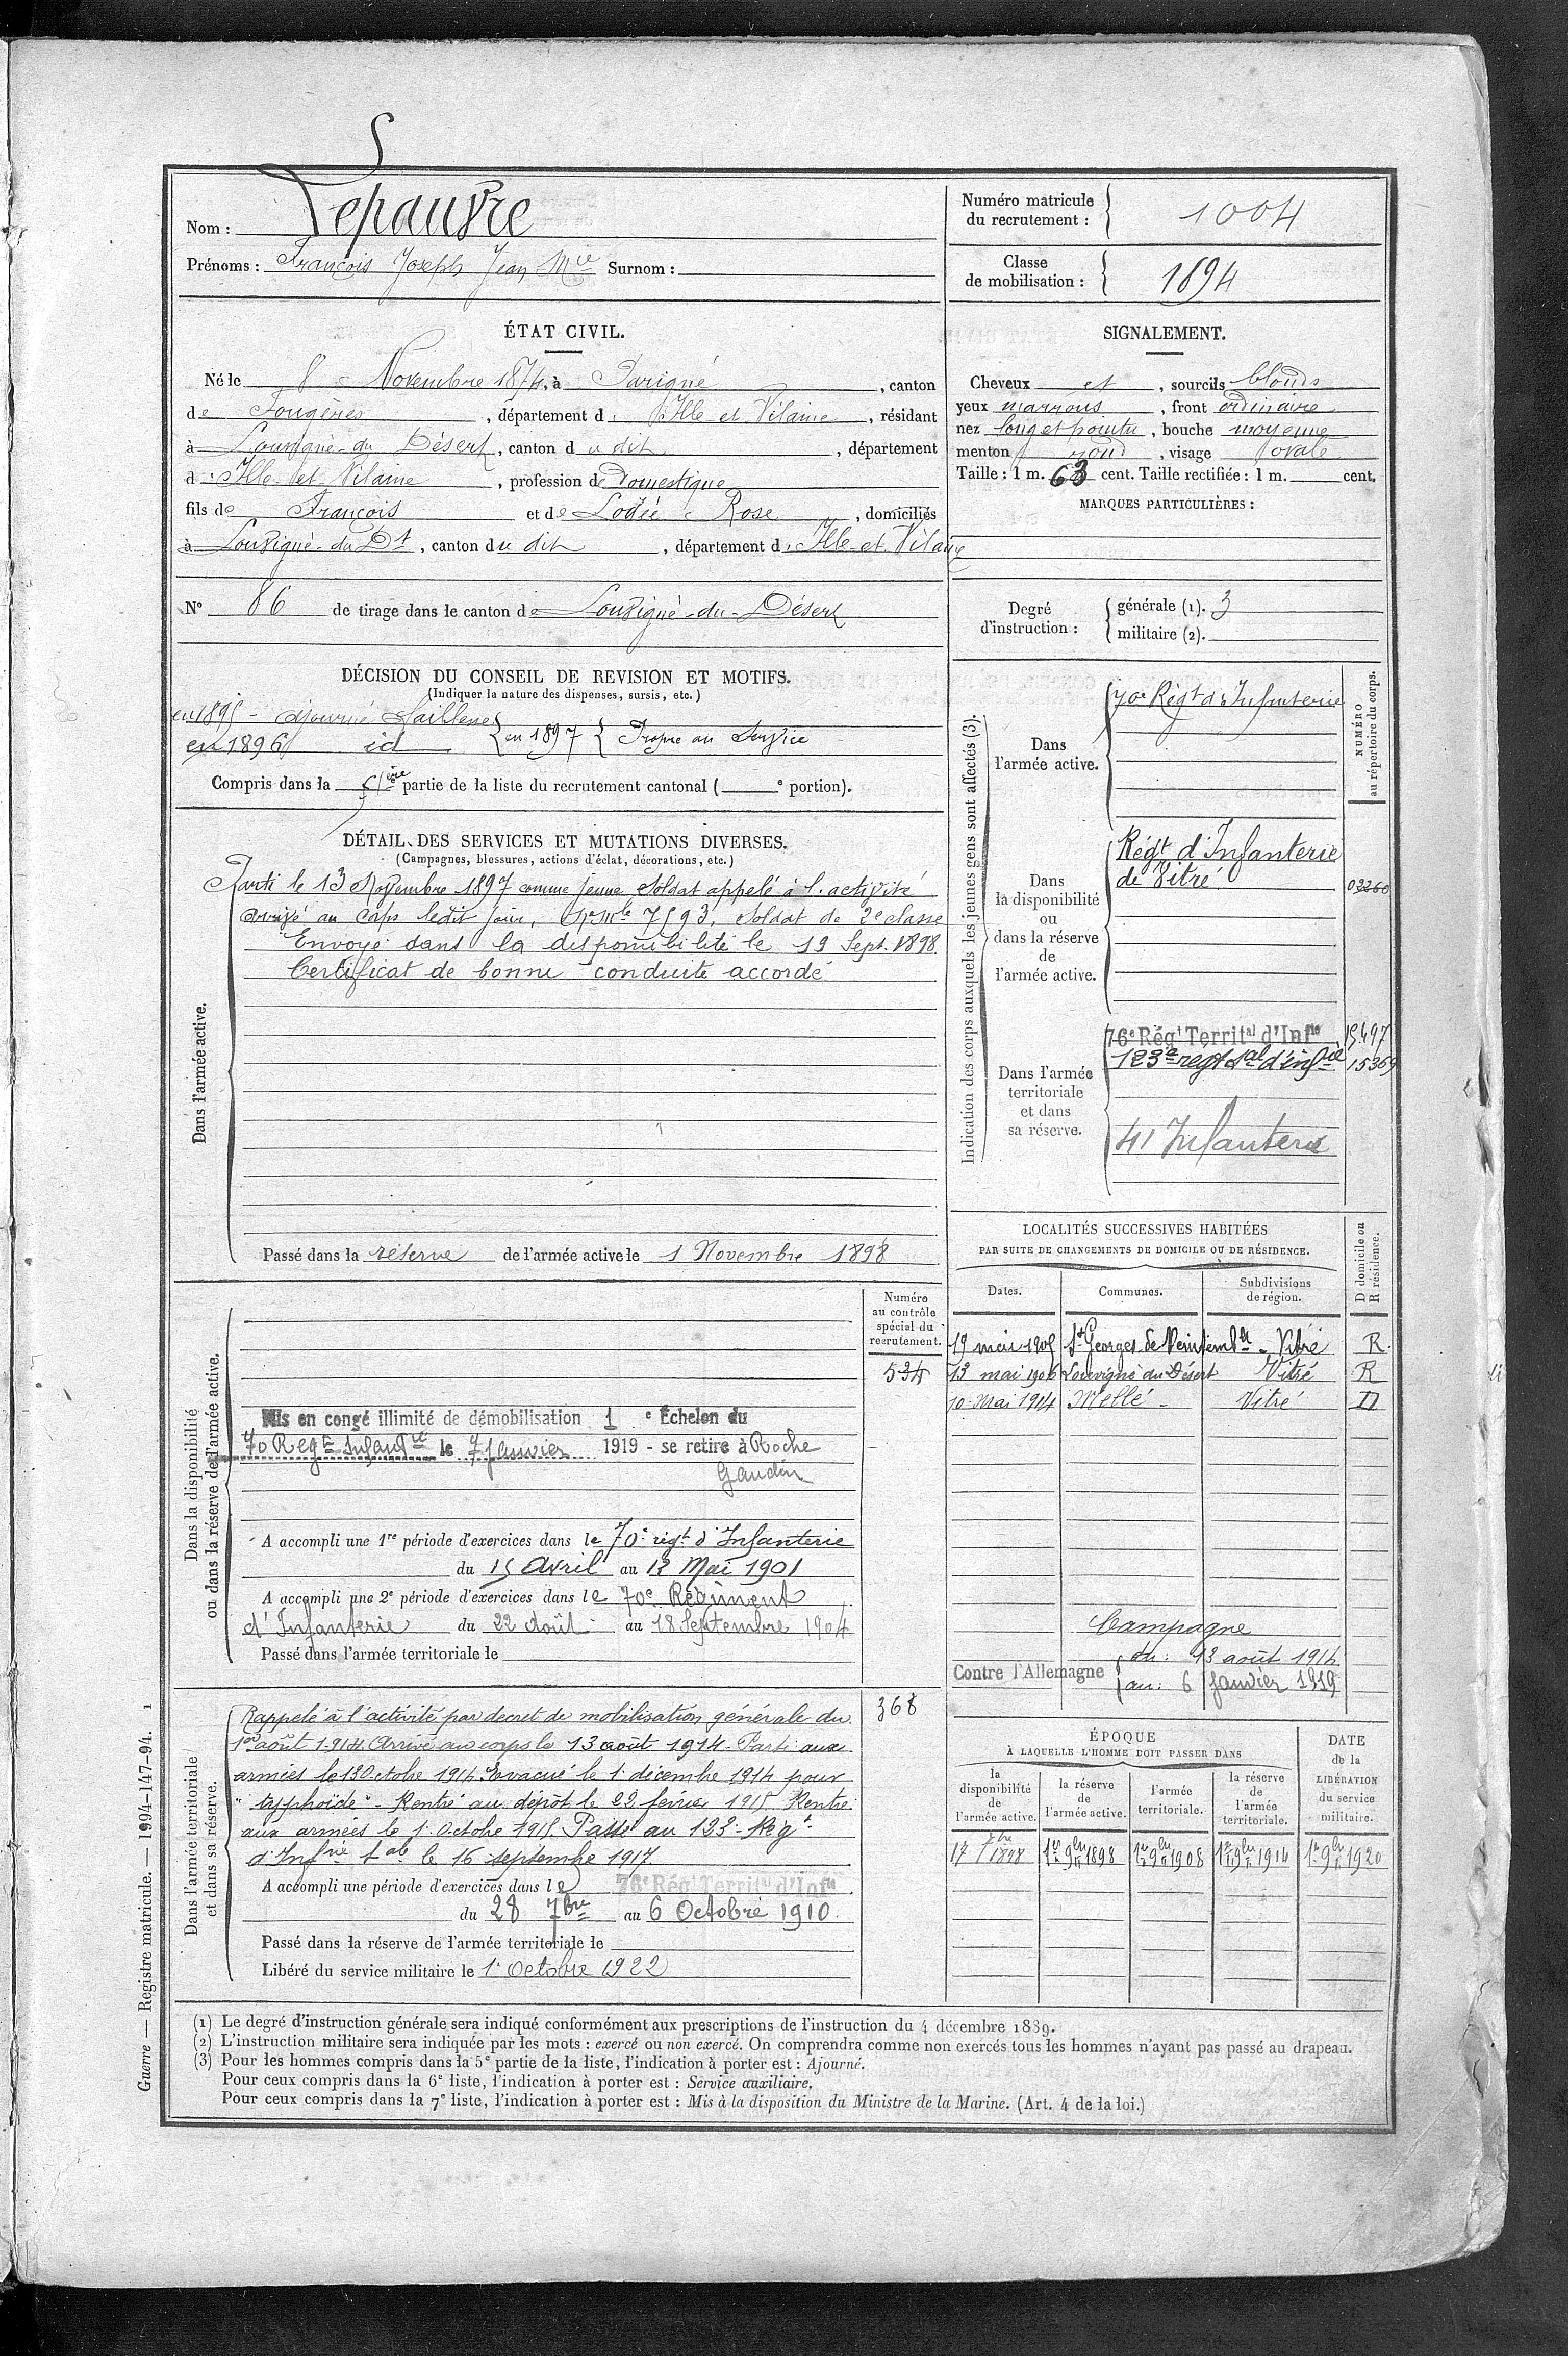 Nom : Lepauvre
Prénoms : François Joseph Jean Mie Surnom :
Numéro matricule du recrutement : 1004
Classe de mobilisation : 1894
ÉTAT CIVIL.
Né le 8 Novembre 1874, à Parigné, canton
de Fougères, département d'Ille et Vilaine, résidant
à Louvigné-du Désert, canton du dit, département
d'Ille et Vilaine, profession de Domestique
fils de François et de Lodié Rose, domiciliés
à Louvigné-du Dt, canton du dit, département d'Ille et Vilaine
N° 86 de tirage dans le canton de Louvigné-du-Désert
SIGNALEMENT.
Cheveux et, sourcils blonds
yeux marrons, front ordinaire
nez long et pointu, bouche moyenne
menton rond, visage ovale
Taille : 1 m. 63 cent. Taille rectifiée : 1 m. cent.
MARQUES PARTICULIÈRES :
Degré d'instruction : générale (1). 3
militaire (2).
DÉCISION DU CONSEIL DE REVISION ET MOTIFS.
(Indiquer la nature des dispenses, sursis, etc.)
en 1895 - ajourné faiblesse
en 1896 id en 1897 Propre au Service
Compris dans la partie de la liste du recrutement cantonal ( e portion).
DÉTAIL DES SERVICES ET MUTATIONS DIVERSES.
(Campagnes, blessures, actions d'éclat, décorations, etc.)
Dans l'armée active.
Parti le 13 Novembre 1897 comme jeune soldat appelé à l'activité
arrivé au corps ledit jour, No Mle 7593, soldat de 2e classe
Envoyé dans la disponibilité le 19 Sept. 1898
Certificat de bonne conduite accordé
Passé dans la réserve de l'armée active le 1 Novembre 1898
Indication des corps auxquels les jeunes gens sont affectés (3).
NUMÉRO au répertoire du corps.
Dans l'armée active.
70e Régt d'Infanterie
Dans la disponibilité ou dans la réserve de l'armée active.
Régt d'Infanterie
de Vitré 03260
Dans l'armée territoriale et dans sa réserve.
76e Régt Territal d'Infie 15497
123e regt tal d'infie 15369
41 Infanterie
LOCALITÉS SUCCESSIVES HABITÉES
PAR SUITE DE CHANGEMENTS DE DOMICILE OU DE RÉSIDENCE.
Dates. Communes. Subdivisions de région. D domicile ou R résidence.
19 mai 1905 St Georges de Reintembt - Vitré R.
13 mai 1906 Louvigné du Désert Vitré R
10 Mai 1914 Mellé - Vitré D
Campagne
Contre l'Allemagne du : 13 août 1914
au : 6 janvier 1919
Dans la disponibilité ou dans la réserve de l'armée active.
Numéro au contrôle spécial du recrutement.
534
Mis en congé illimité de démobilisation 1 e Échelon du
70 Regt Infantie le 7 janvier 1919 - se retire à Roche
Gaudin
A accompli une 1re période d'exercices dans le 70e régt d'Infanterie
du 15 Avril au 12 Mai 1901
A accompli une 2e période d'exercices dans le 70e Régiment
d'Infanterie du 22 Août au 18 Septembre 1904
Passé dans l'armée territoriale le
Dans l'armée territoriale et dans sa réserve.
368
Rappelé à l'activité par decret de mobilisation générale du
1er août 1914. Arrivé au corps le 13 août 1914. Parti aux
armées le 13 Octobre 1914. Evacué le 1 décembre 1914 pour
"typhoïde" - Rentré au dépôt le 22 fevrier 1915 Rentré
aux armées le 1 Octobre 1915. Passé au 123e Régt
d'Infrie tale le 16 septembre 1917
A accompli une période d'exercices dans le 76e Régt Territal d'Infie
du 28 7bre au 6 Octobre 1910.
Passé dans la réserve de l'armée territoriale le
Libéré du service militaire le 1 Octobre 1922
ÉPOQUE
À LAQUELLE L'HOMME DOIT PASSER DANS
la disponibilité de l'armée active. la réserve de l'armée active. l'armée territoriale. la réserve de l'armée territoriale. DATE de la LIBÉRATION du service militaire.
17 7bre 1898 1er 9bre 1898 1er 9bre 1908 1er 9bre 1914 1er 9bre 1920
(1) Le degré d'instruction générale sera indiqué conformément aux prescriptions de l'instruction du 4 décembre 1889.
(2) L'instruction militaire sera indiquée par les mots : exercé ou non exercé. On comprendra comme non exercés tous les hommes n'ayant pas passé au drapeau.
(3) Pour les hommes compris dans la 5e partie de la liste, l'indication à porter est : Ajourné.
Pour ceux compris dans la 6e liste, l'indication à porter est : Service auxiliaire.
Pour ceux compris dans la 7e liste, l'indication à porter est : Mis à la disposition du Ministre de la Marine. (Art. 4 de la loi.)
Guerre — Registre matricule. — 1994-147-94. 1